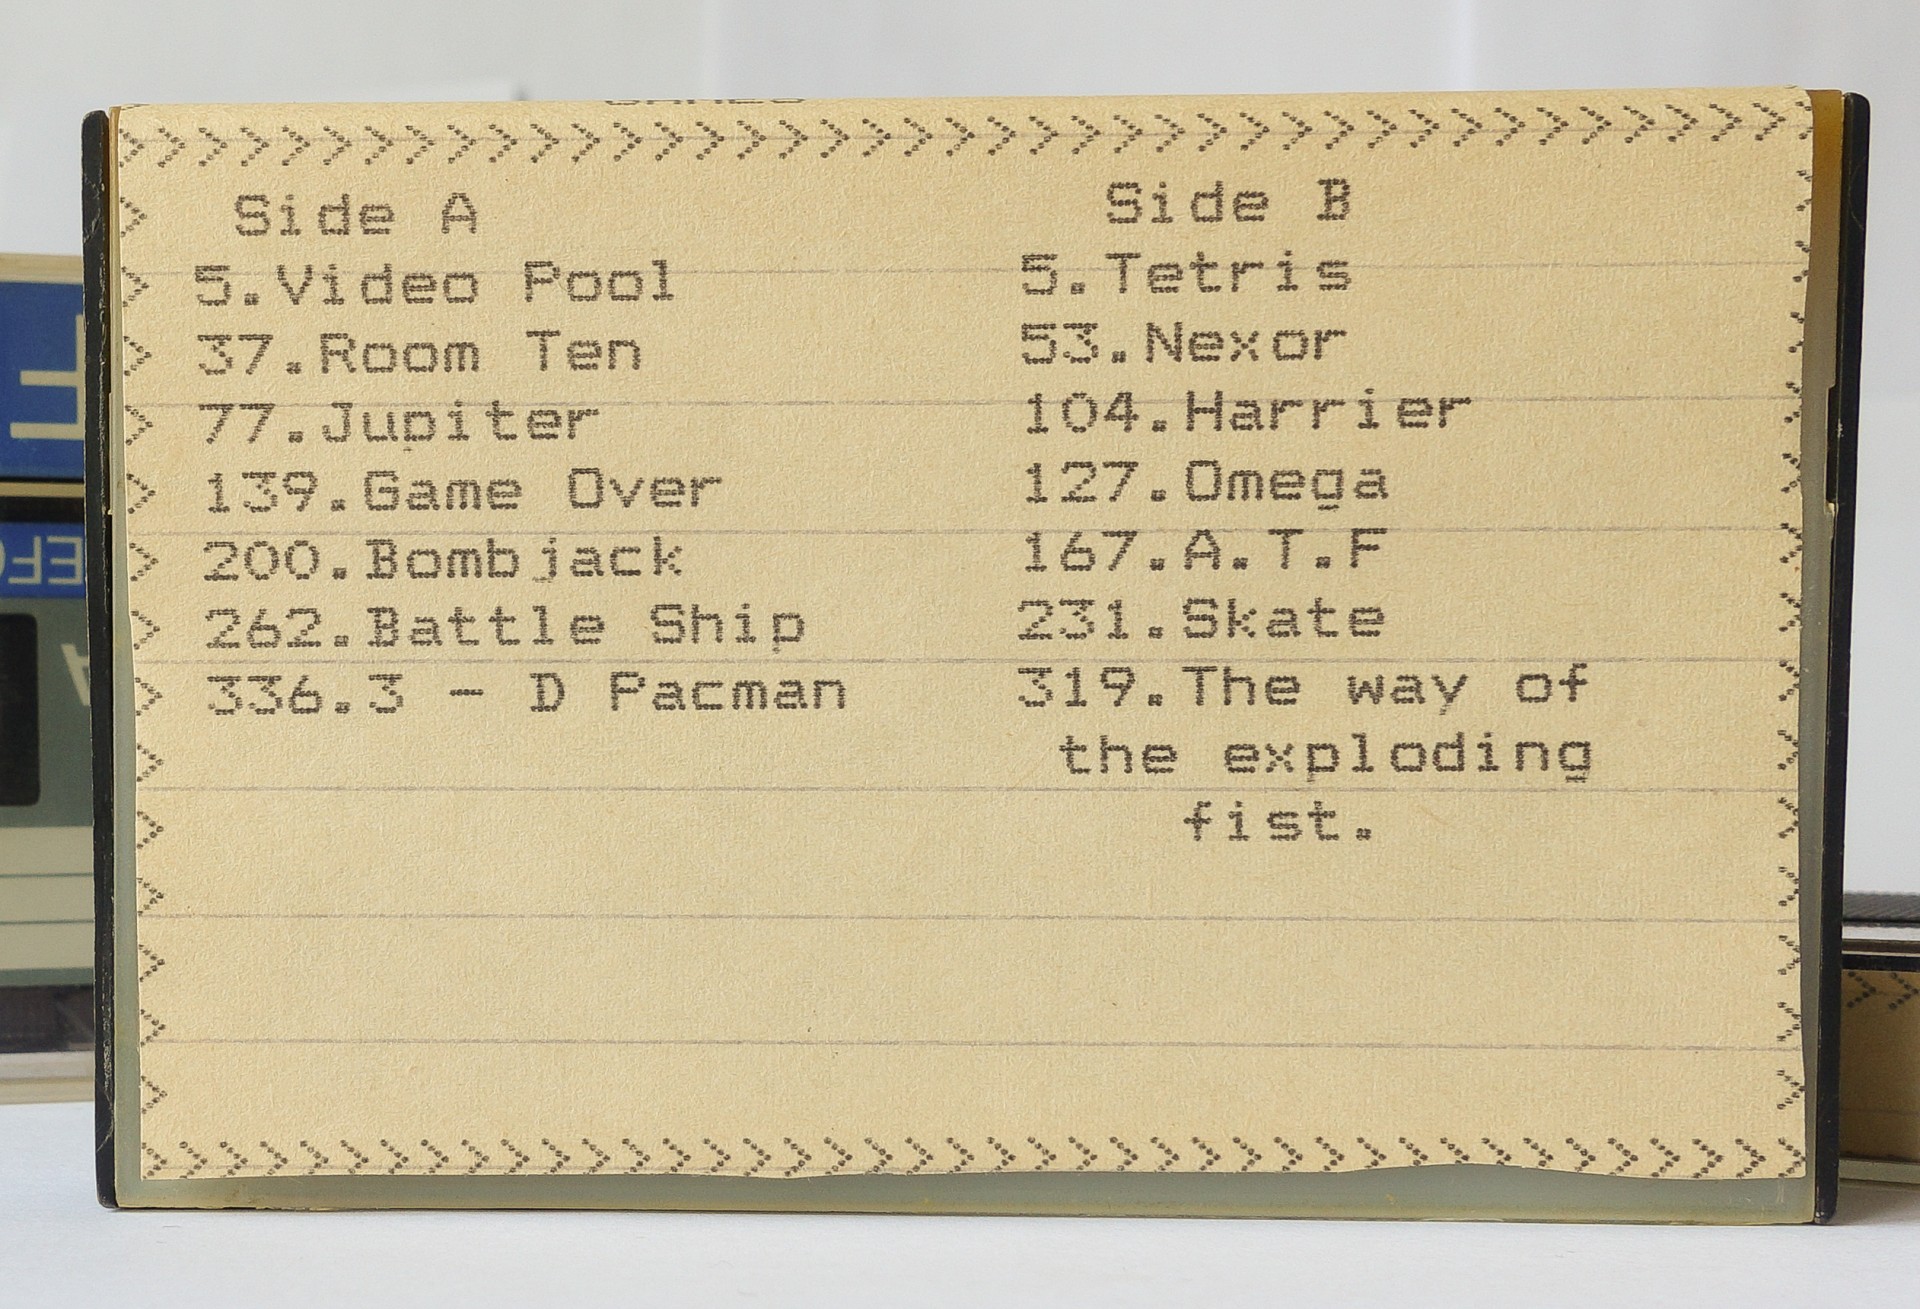 Side A
5.Video Pool
37.Room Ten
77.Jupiter
139.Game Over
200.Bombjack
262.Battle Ship
336.3 - D Pacman
Side B
5.Tetris
53.Nexor
104.Harrier
127.Omega
167.A.T.F
231.Skate
319.The way of
the exploding
fist.